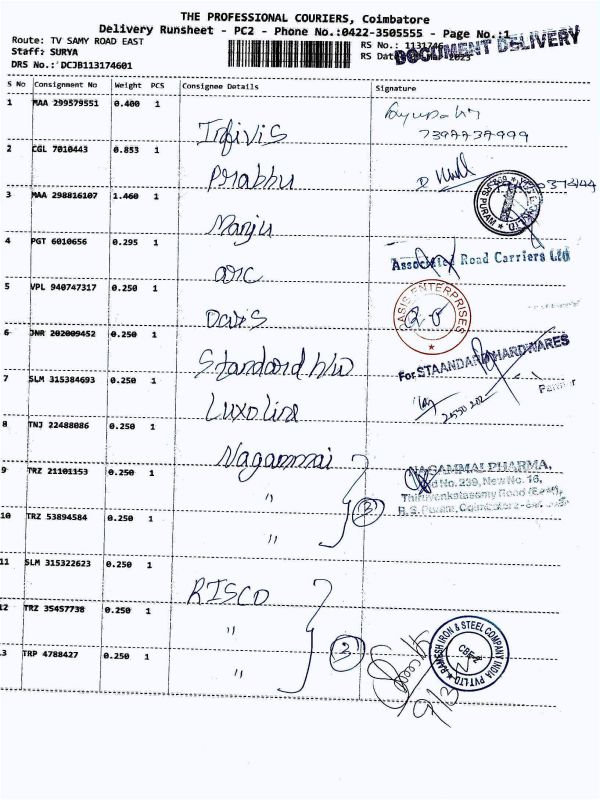 THE PROFESSIONAL COURIERS, Coimbatore
Delivery Runsheet - PC2 - Phone No.:0422-3505555 - Page No.:1
Route: TV SAMY ROAD EAST
RS No.: 1131746
DOCUMENT DELIVERY
Staff: SURYA
RS Dat 2023
DRS No.: DCJB113174601
S No Consignment No Weight PCS Consignee Details Signature
1 MAA 299579551 0.400 1 Infivis
7397737999
2 CGL 7010443 0.853 1 Prabhu
3 MAA 298816107 1.460 1 Manju
4 PGT 6010656 0.295 1 arc
Associated Road Carriers Ltd
5 VPL 940747317 0.250 1 Oasis
OASIS ENTERPRISES
6 JNR 202009452 0.250 1 Standard h/w
For STAANDARD HARDWARES
Partner
7 SLM 315384693 0.250 1 Luxoline
8 TNJ 22488086 0.250 1 Nagammai
NAGAMMAI PHARMA,
9 TRZ 21101153 0.250 1 "
Old No. 239, New No. 16,
Thiruvenkatasamy Road (East),
R.S. Puram, Coimbatore -
3
10 TRZ 53894584 0.250 1 "
11 SLM 315322623 0.250 1 RISCO
12 TRZ 35457738 0.250 1 "
3
RAMESH IRON & STEEL COMPANY INDIA PVT LTD
CBE-2
13 TRP 4788427 0.250 1 "
9/3